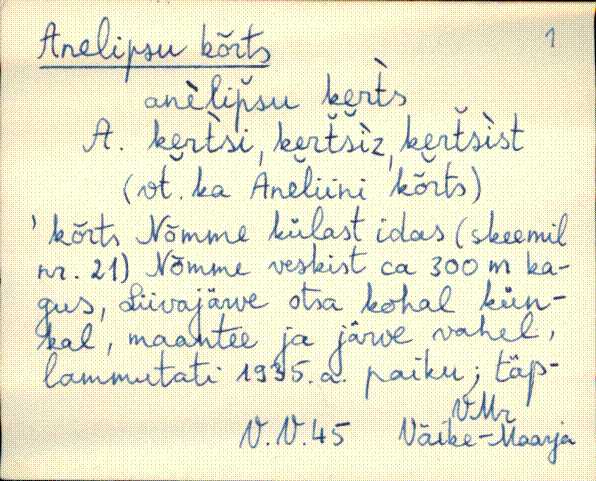 Anelipsu kõrts 1
anèlip̌su kerts̀
A. kerts̀i, kerťšìz, kerťšìst
(vt. ka Aneliini kõrts)
'kõrts Nõmme külast idas (skeemil
nr. 21) Nõmme veskist ca 300 m ka-
gus, Liivajärve otsa kohal kün-
kal, maantee ja järve vahel,
lammutati 1935.a. paiku; täp-
VMr
V.V.45 Väike-Maarja